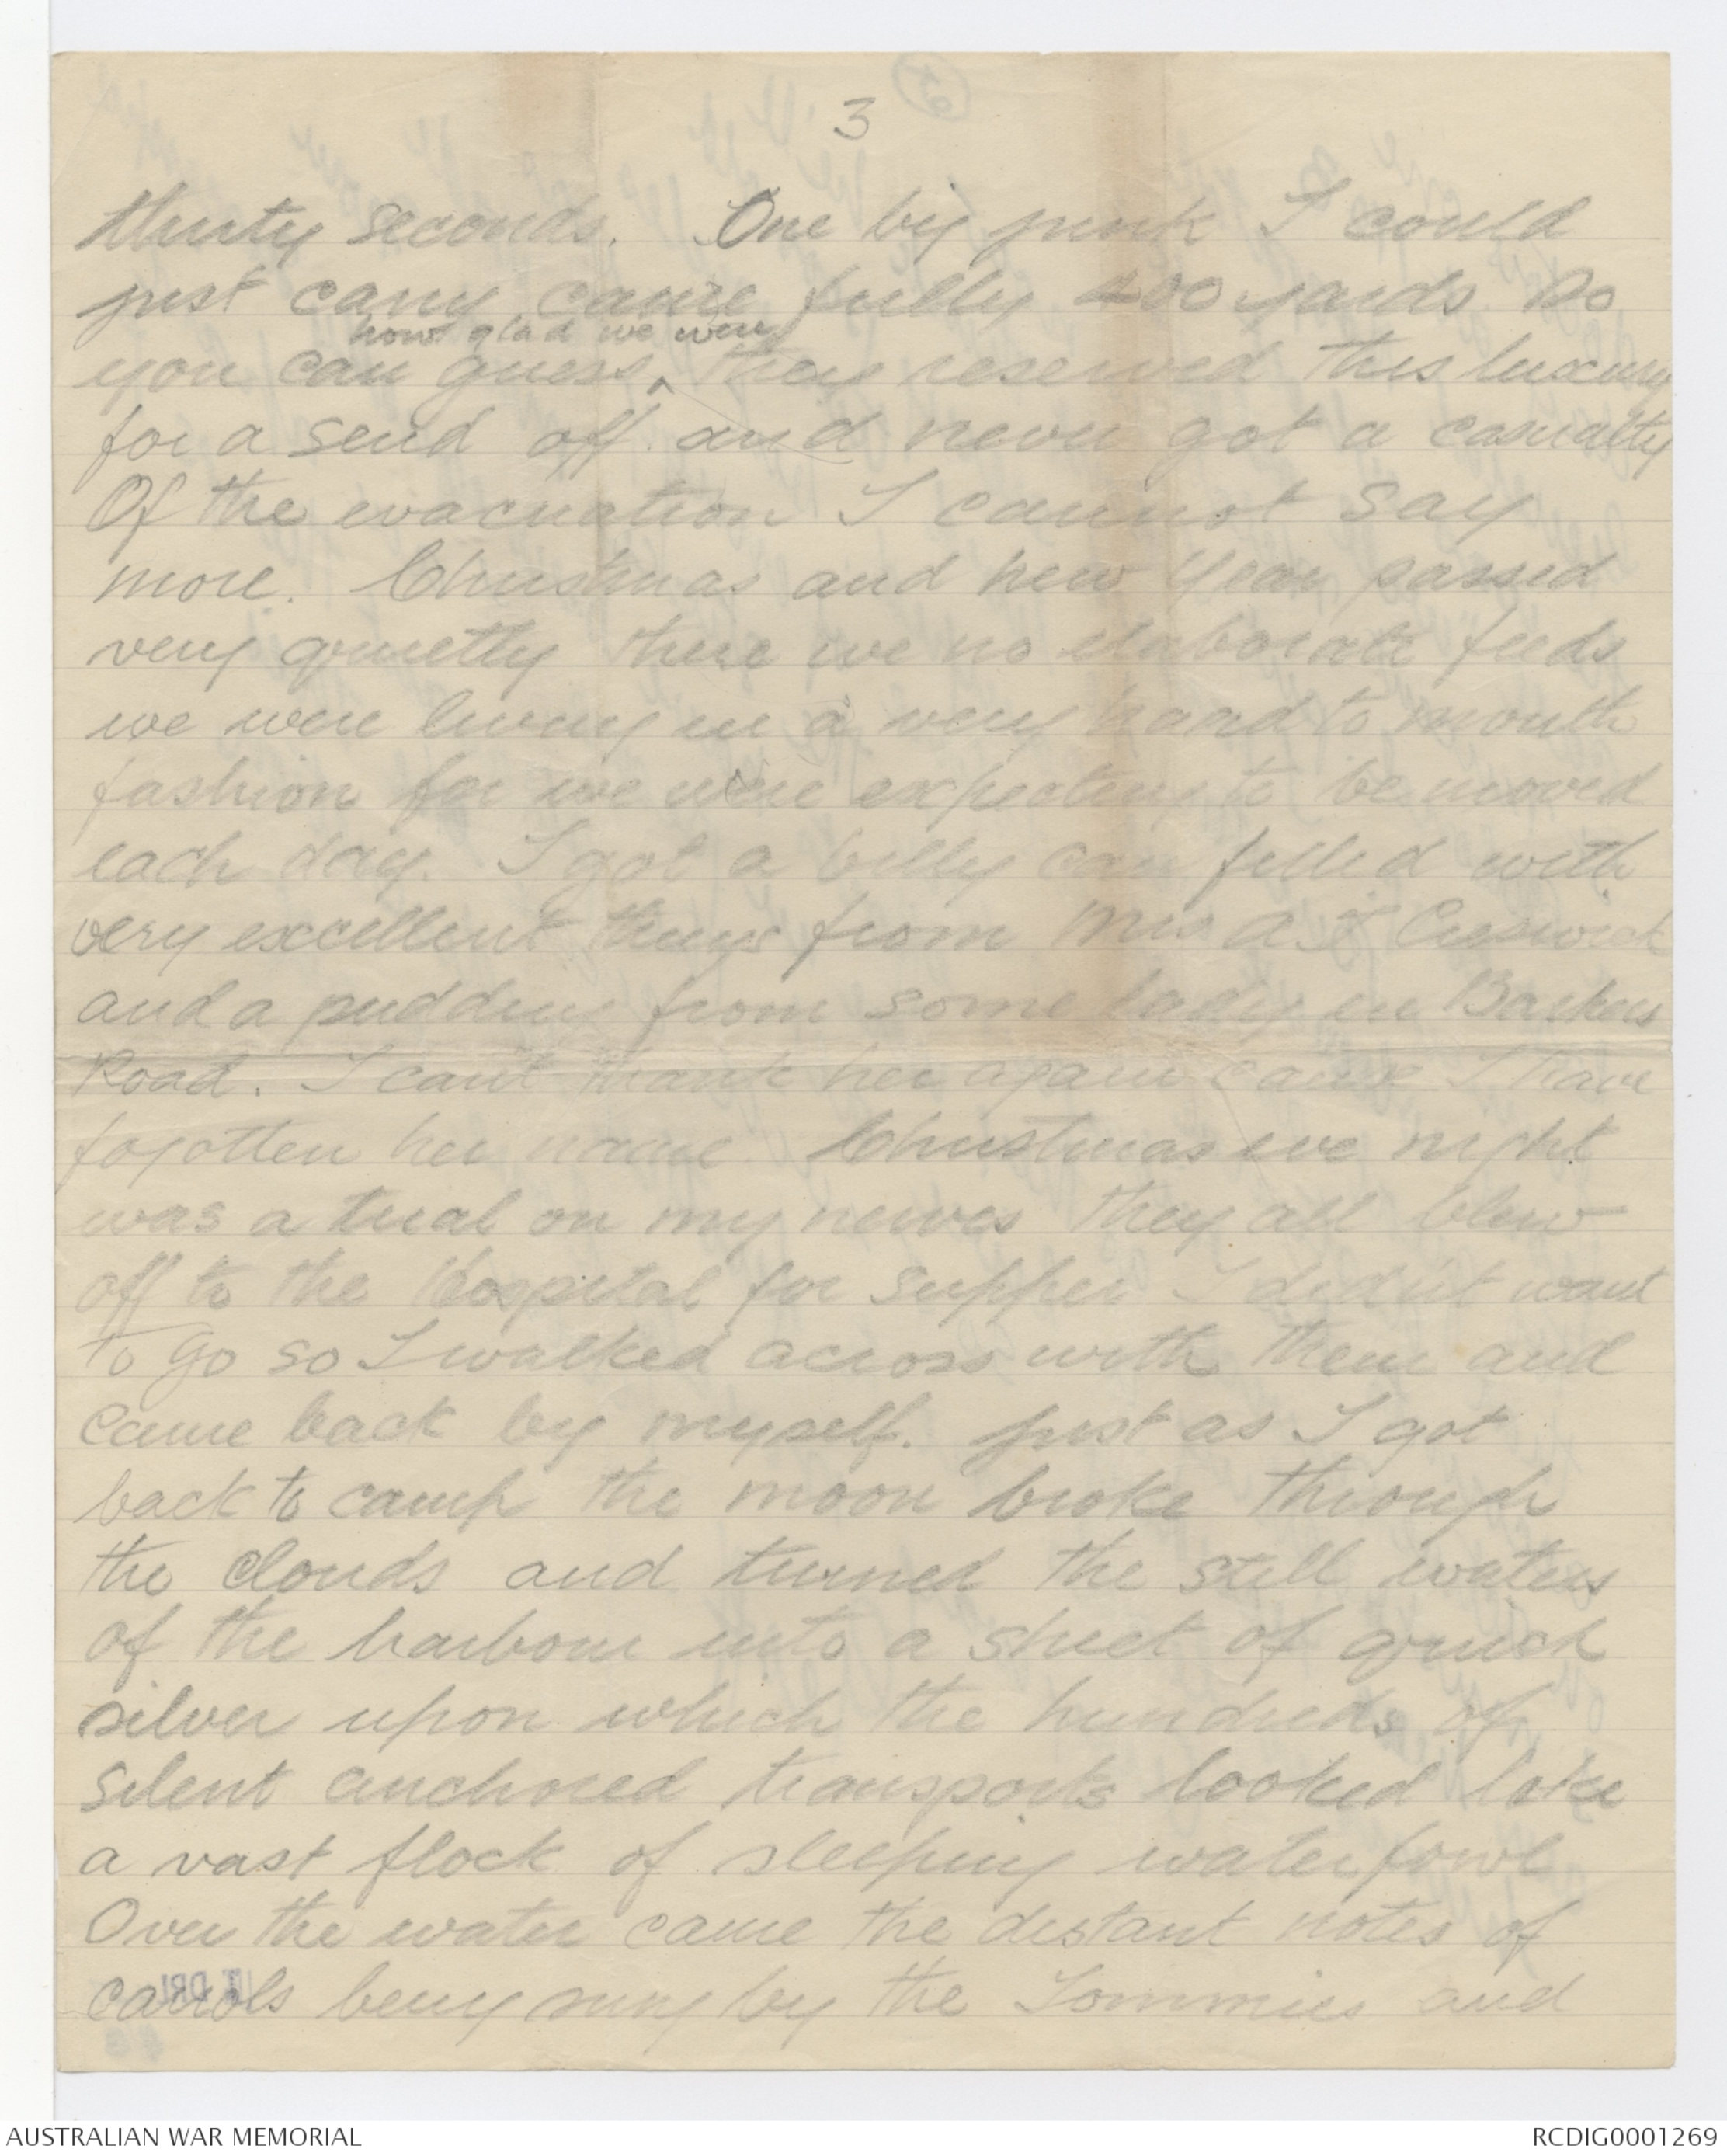 3
thirty seconds. One big junk I could
just carry came fully 400 yards. So
how glad we were
you can guess ^ they reserved this luxury
for a send off. and never got a casualty
Of the evacuation I cannot say
more. Christmas and new Year passed
very quietly there we no elaborate feeds
we were living in a very hand to mouth
fashion for we were expecting to be moved
each day. I got a billy can filled with
very excellent things from Mrs A. Creswick
and a pudding from some lady in Barkers
Road. I can't thank her again cause I have
fogotten her name. Christmas eve night
was a trial on my nerves they all blew
off to the Hospital for supper I didn't want
to go so I walked across with them and
came back by myself. Just as I got
back to camp the moon broke through
the clouds and turned the still waters
of the harbour into a sheet of quick
silver upon which the hundreds of
silent anchored transports looked like
a vast flock of sleeping waterfowl
Over the water came the distant notes of
carrols being sung by the Tommies and
AUSTRALIAN WAR MEMORIAL
RCDIG0001269